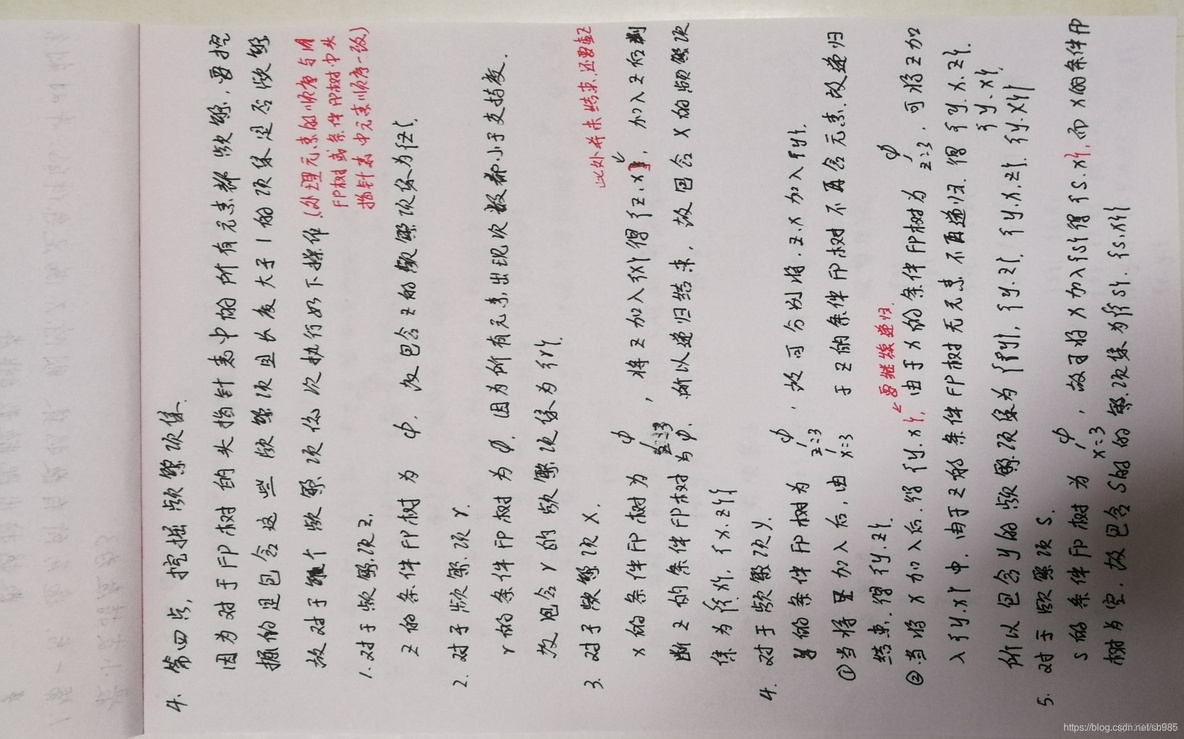 4. 第四点，挖掘频繁项集.
因为对于FP树的头指针表中的所有元素都频繁，要挖
掘的是包含这些频繁项且长度大于1的项集是否频繁
故对于每个频繁项依次执行如下操作（处理元素的顺序与用
FP树或条件FP树中头
指针表中元素顺序一致）
1. 对于频繁项z.
z的条件FP树为φ. 故包含z的频繁项集为{z}.
2. 对于频繁项r.
r的条件FP树为φ, 因为所有元素出现次数都小于支持度.
故包含r的频繁项集为{r}.
3. 对于频繁项x.
此处并未结束,还要继
x的条件FP树为 φ z=3 , 将z加入{x}得{z.x}, 加入z后判
断z的条件FP树为φ. 所以递归结束, 故包含x的频繁项
集为{{x}, {x.z}}
4. 对于频繁项y.
y的条件FP树为 φ z=3 x=3 , 故可分别将.z.x加入{y}.
①当将z加入后,由于z的条件FP树不再含元素.故递归
结束.得{y.z}.
要继续递归.
②当将.x加入后.得{y.x}, 由于x的条件FP树为 φ z=3 , 可将z加
入{y.x}中.由于z的条件FP树无元素.不再递归.得{y.x.z}.
{y.x}
所以包含y的频繁项集为{{y}, {y.z}, {y.x.z}. {y.x}}
5. 对于频繁项s.
s的条件FP树为 φ x=3 , 故可将x加入{s}得{s.x}, 而x的条件FP
树为空. 故包含s的频繁项集为{{s}. {s.x}}
https://blog.csdn.net/sb985